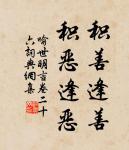 积善逢善
积恶逢恶
喻世明言卷二十
六詞典網集